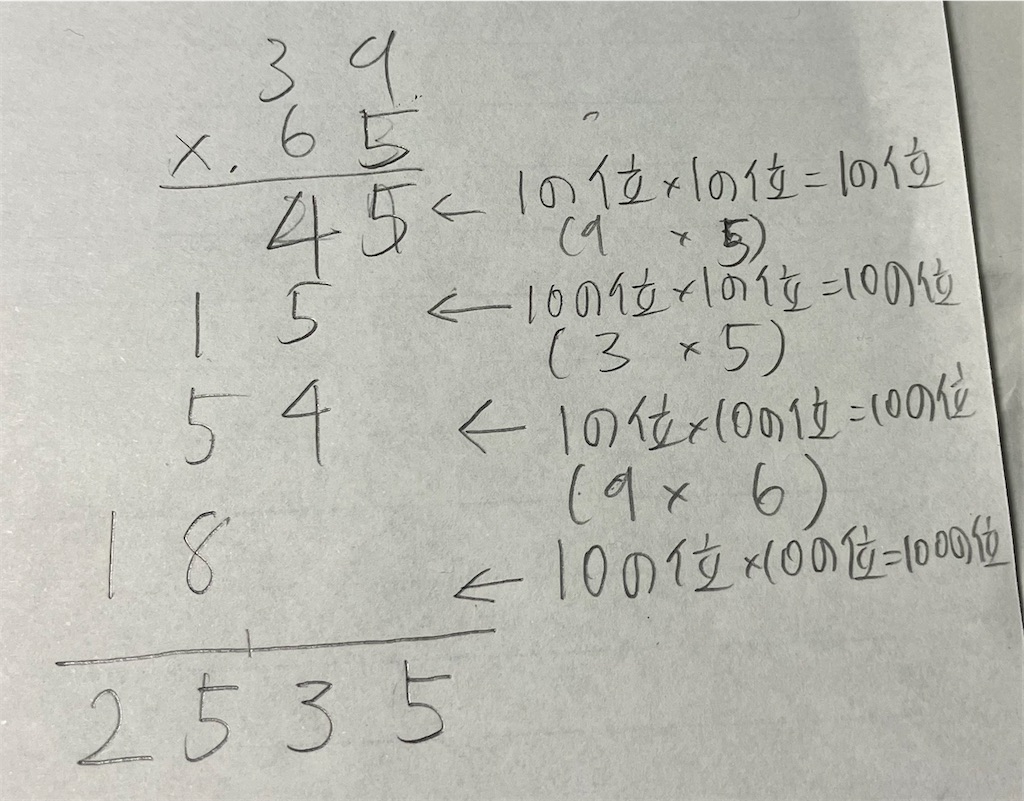 3 9
× . 6 5
4 5 ← 1の位×1の位=1の位
(9 × 5)
1 5 ← 10の位×1の位=10の位
(3 × 5)
5 4 ← 1の位×10の位=10の位
(9 × 6)
1 8 ← 10の位×10の位=100の位
2 5 3 5